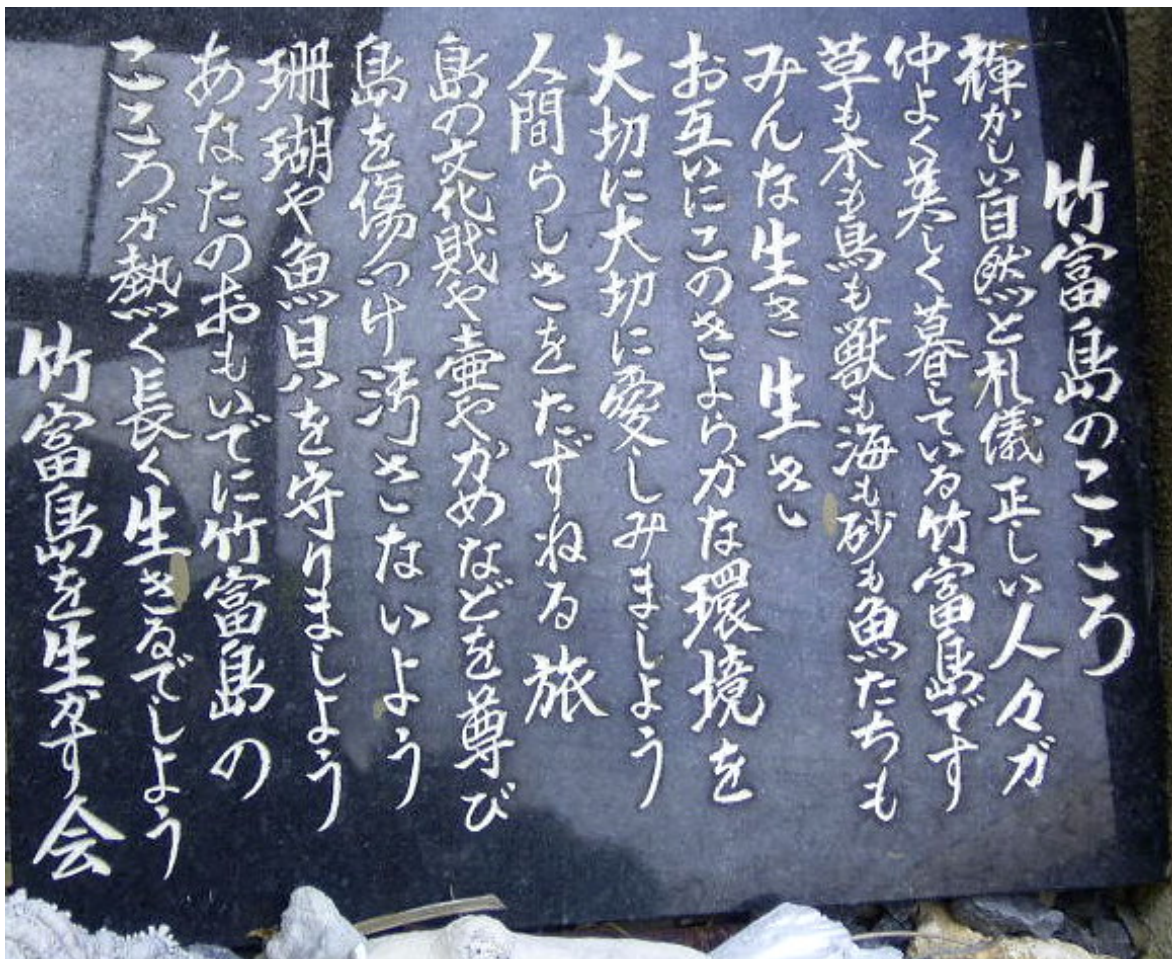 竹富島のこころ
輝かしい自然と礼儀正しい人々が
仲よく美しく暮している竹富島です
草も木も鳥も獣も海も砂も魚たちも
みんな生き生きし
お互いにこのきよらかな環境を
大切に大切に愛しみましょう
人間らしさをたずねる旅
島の文化財や壷やかめなどを尊び
島を傷つけ汚さないよう
珊瑚や魚貝を守りましょう
あなたのおもいでに竹富島の
こころが熱く長く生きるでしょう
竹富島を生かす会